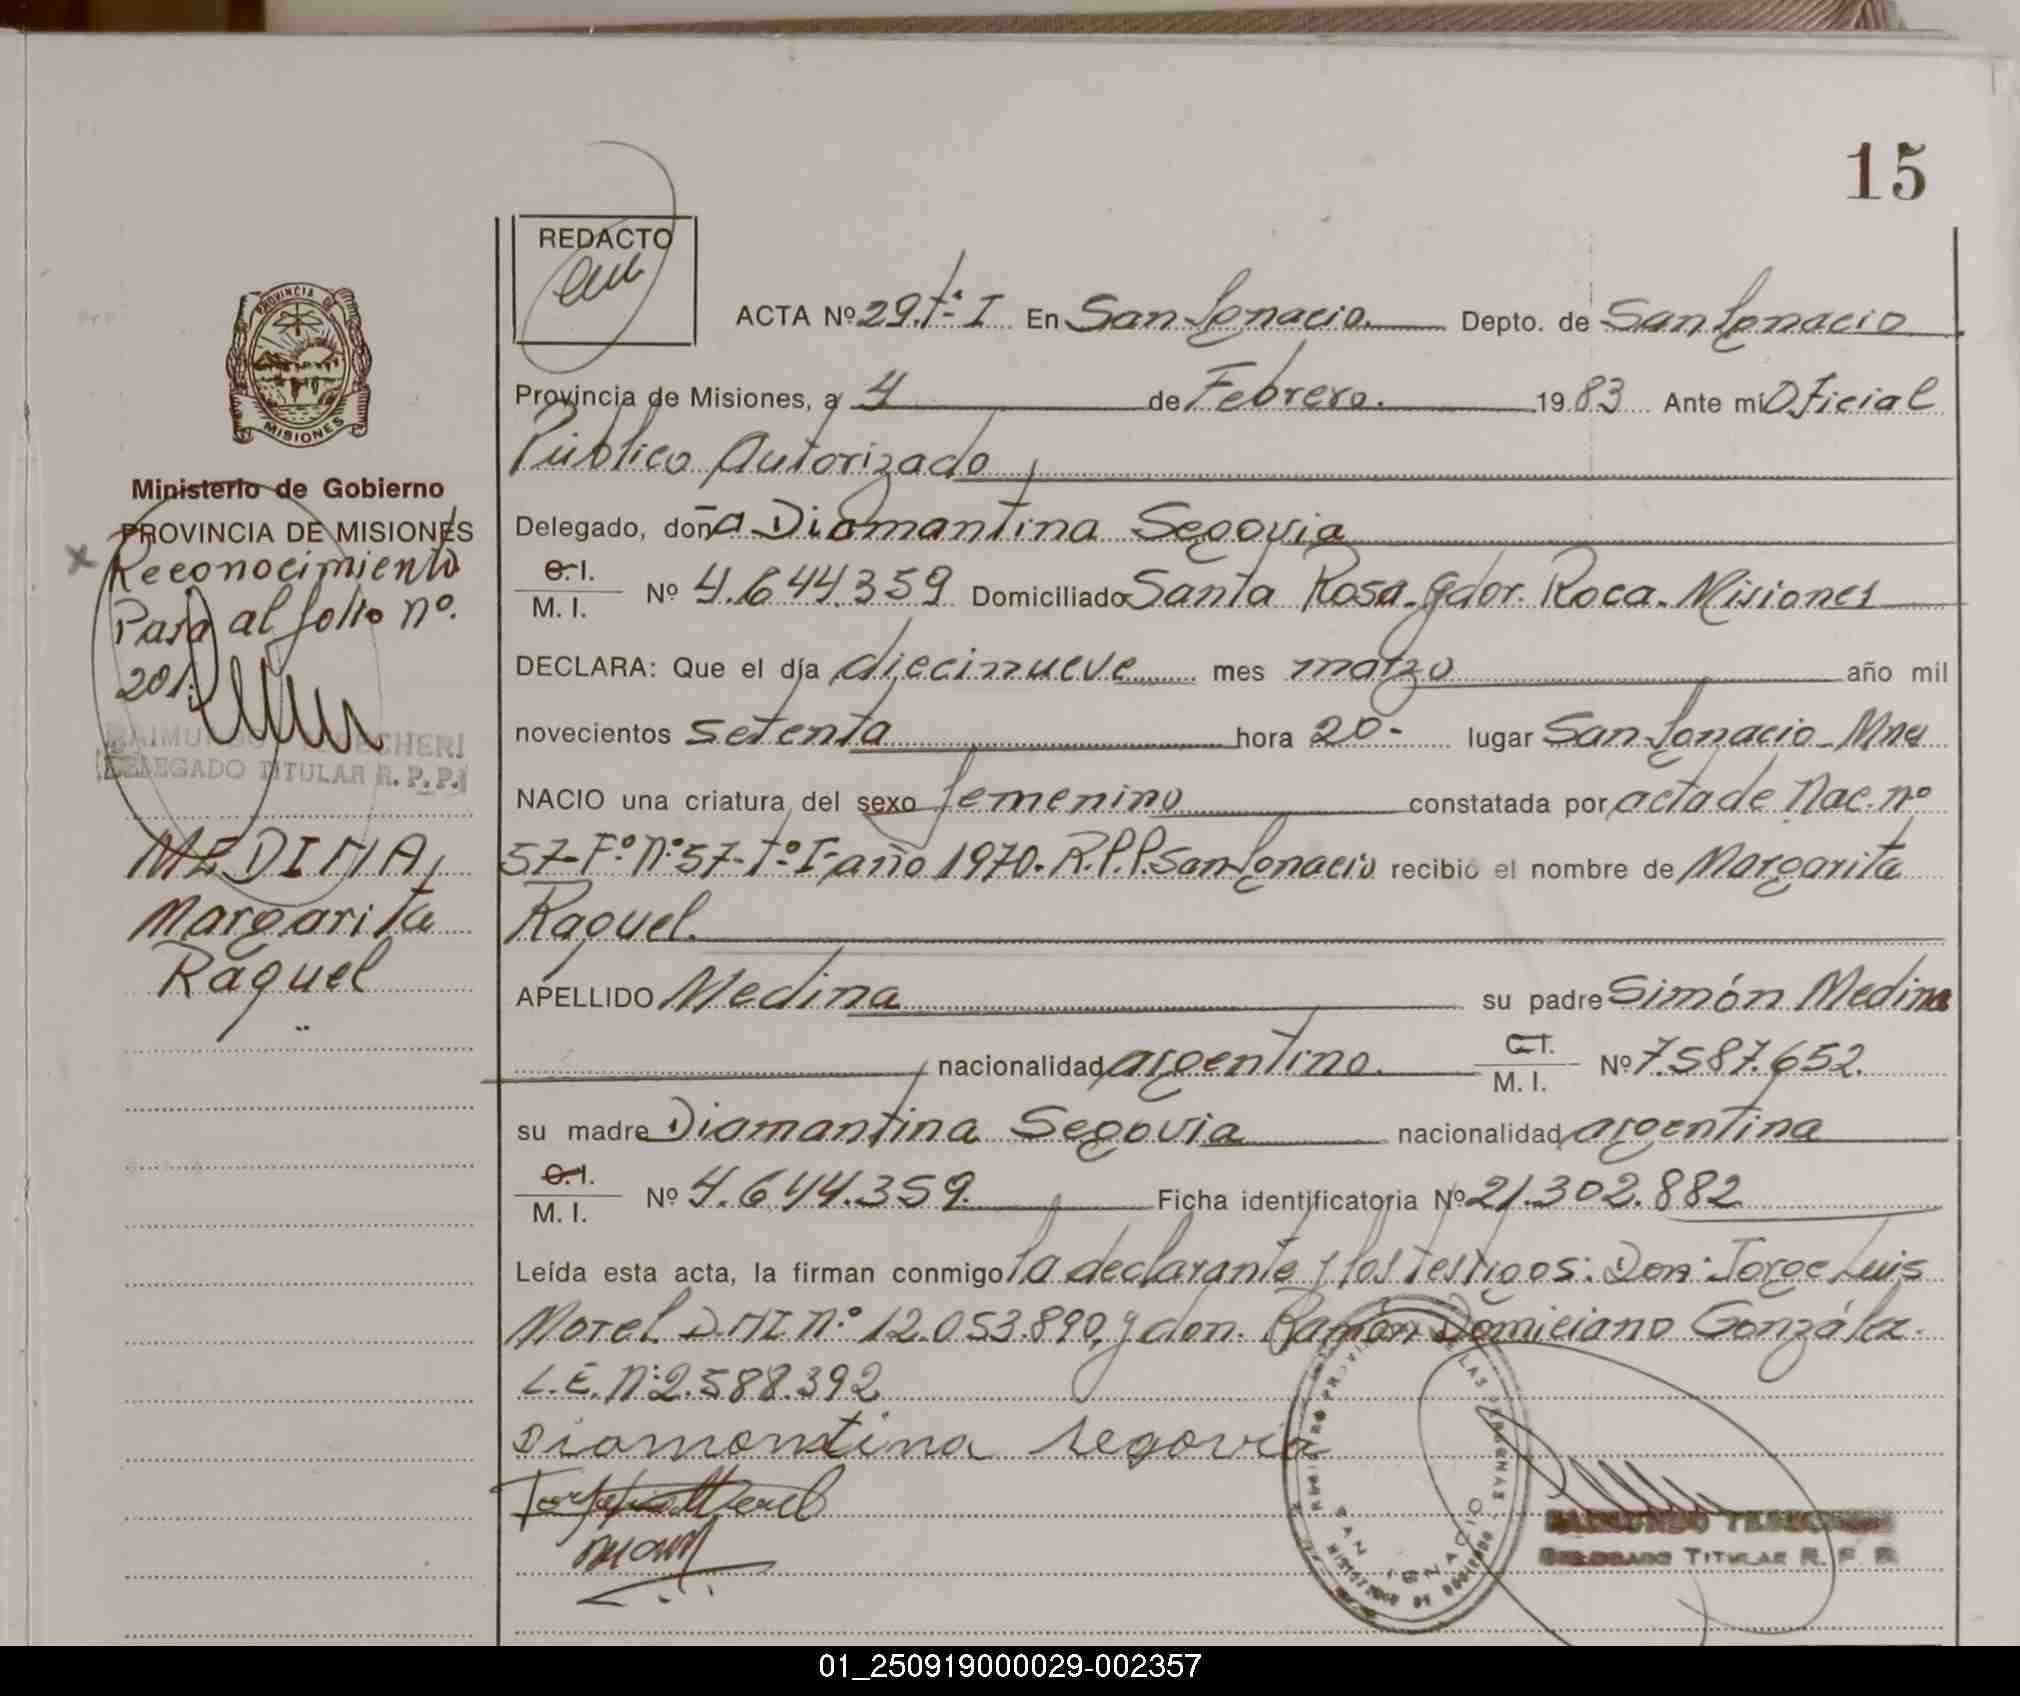 15
REDACTO
ACTA Nº 29. Tº I En San Ignacio. Depto. de San Ignacio
Provincia de Misiones, a 4 de Febrero. 1983 Ante mi Oficial
Público Autorizado
Delegado, doña Diamantina Segovia
C.I.
M. I. Nº 4.644.359 Domiciliado Santa Rosa. Gdor. Roca. Misiones
DECLARA: Que el día diecinueve mes marzo año mil
novecientos setenta hora 20- lugar San Ignacio - Mnes
NACIO una criatura del sexo femenino constatada por acta de Nac. nº
57- Fº. Nº 57- Tº I- año 1970. R.P.P. San Ignacio recibió el nombre de Margarita
Raquel.
APELLIDO Medina su padre Simón Medina
nacionalidad argentino. C.I.
M. I. Nº 7.587.652.
su madre Diamantina Segovia nacionalidad argentina
C.I.
M. I. Nº 4.644.359. Ficha identificatoria Nº 21.302.882
Leída esta acta, la firman conmigo la declarante y los testigos: Don: Jorge Luis
Morel D.N.I. Nº 12.053.890, y don. Ramón Domiciano González.
L.E. Nº 2.588.392
Diamantina Segovia
SAN IGNACIO
DELEGADO TITULAR R. P. P.
PROVINCIA DE
MISIONES
Ministerio de Gobierno
PROVINCIA DE MISIONES
Reconocimiento
Pasa al folio nº.
201.
RAIMUNDO
DELEGADO TITULAR R. P. P.
MEDINA,
Margarita
Raquel
01_250919000029-002357